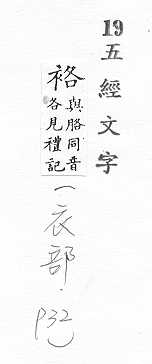 19五經文字
袼與胳同音各見禮記
(衣部.P32)